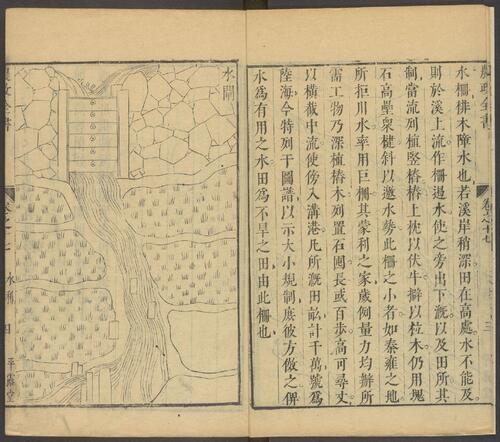 農政全書
卷之十七
三
水柵排木障水也若溪岸稍深田在高處水不能及
則於溪上流作柵遏水使之旁出下溉以及田所其
制當流列植竪樁樁上枕以伏牛擗以柆木仍用塊
石高壘衆楗斜以邀水勢此柵之小者如秦雍之地
所拒川水率用巨柵其蒙利之家歲例量力均辦所
需工物乃深植樁木列置石囤長或百步高可尋丈
以橫截中流使傍入溝港凡所溉田畝計千萬號爲
陸海今特列于圖譜以示大小規制庶彼方倣之俾
水爲有用之水田爲不旱之田由此柵也
水閘
農政全書
卷之十七
水利
四
平露堂